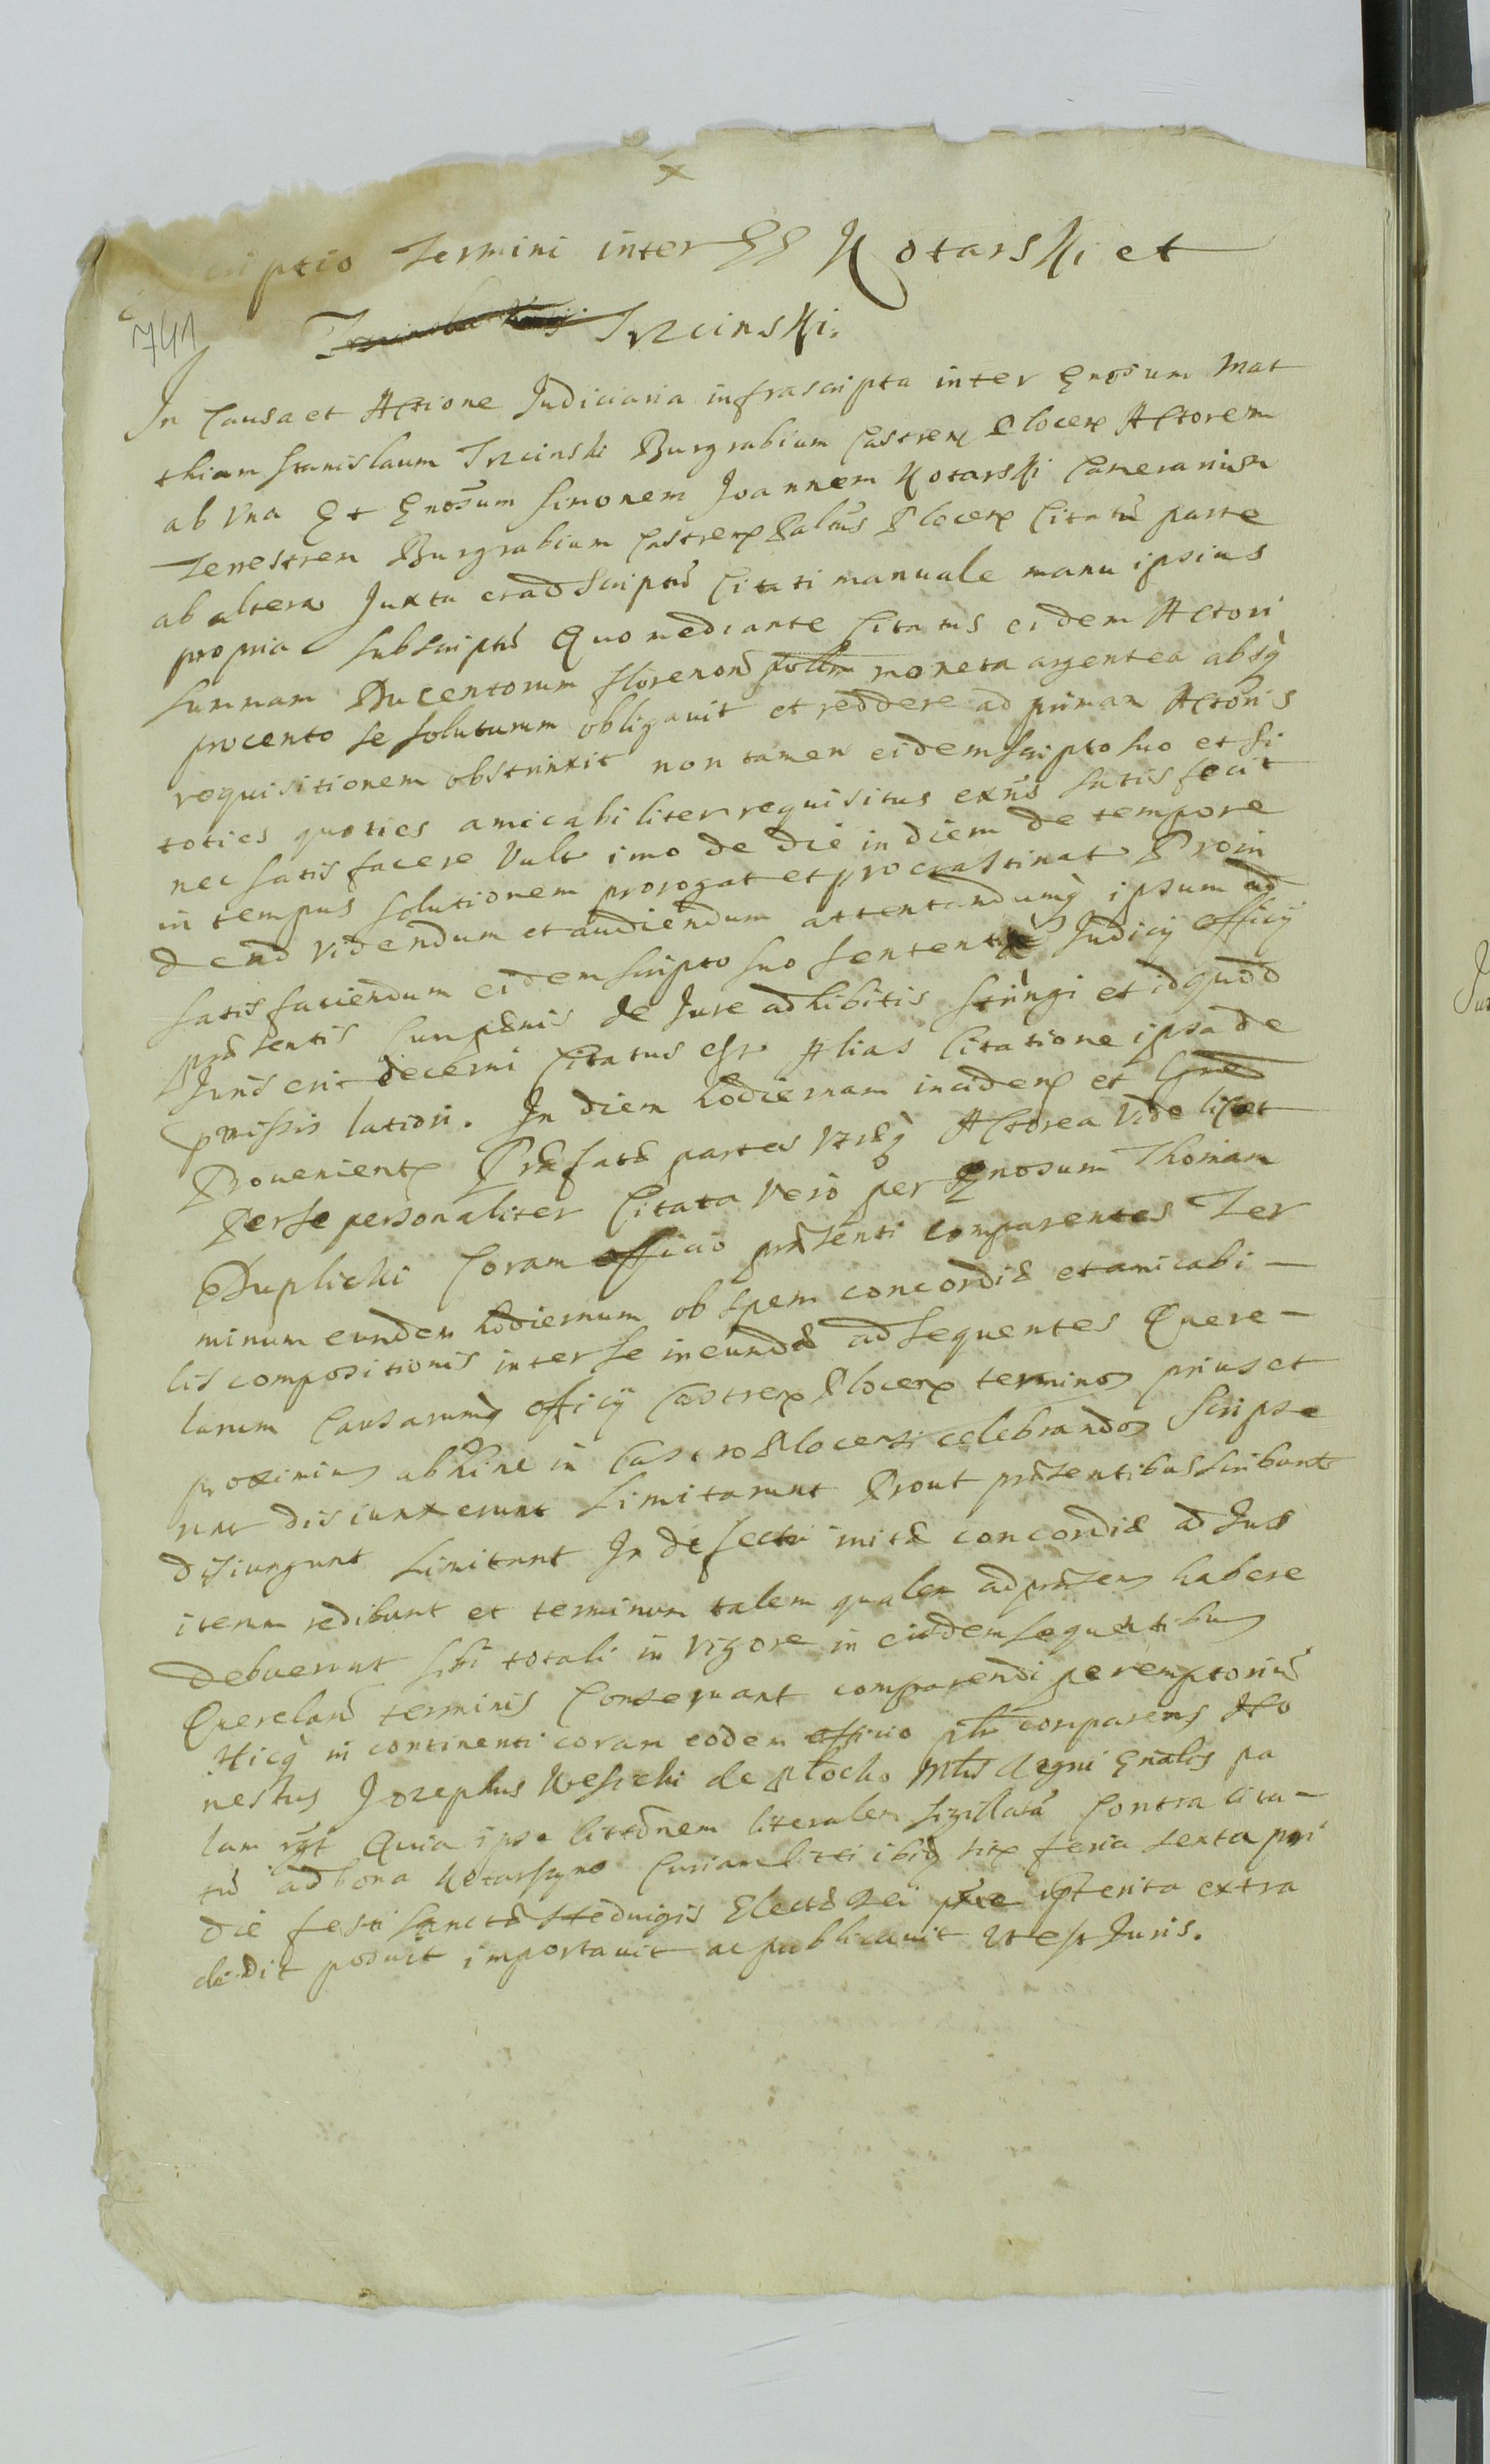 criptio Termini inter GG Kotarski et
Trzcinski.
741
In Causa et Actione Judiciaria infrascripta inter Gnosum Mat
thiam Stanislaum Trzcinski Burgrabium Castren Plocen Actorem
ab Una Et Gnosum Simonem Joannem Kotarski Camerarium
Terrestrem Burgrabium Castren Plocen Citatū parte
ab altera Juxta scriptū Citati manuale manu ipsius
propria subscriptū Quo mediante Citatus eidem Actori
summam Ducentorum florenorū pollm moneta argentea absq
procento se soluturum obligauit et reddere ad primam Actoris
requisitionem obstrinxit non tamen eidem scripto suo et si
toties quoties amicabiliter requisitus exns satis fecit
nec satis facere Vult imo de die in diem de tempore
in tempus solutionem prorogat et procrastinat Proin
dend Videndum et audiendum attentandumq ipsum ad
satis faciendum eidem scripto suo sententia Judicij officij
prsentis cum pænis de Jure adhibitis stringi et id quod
Juris erit decerni Citatus est Alias Citatione ipsa de
præmissis latiori. In diem hodiernam inciden et
Prouenien Præfatæ partes utræq Actorea Videlicet
Per se personaliter Citata Vero per Gnosum Thomam
Duplicki Coram officio prsenti comparentes Ter
minum eundem hodiernum ob spem concordiæ et amicabi-
lis compositionis inter se ineundæ ad sequentes Quere-
larum Causarumq officij Castren Plocen terminos prius et
proximius abhinc in Castro Plocensi celebrandos Scripse
runt disiunxerunt Limitarunt Prout præsentibus scribunt
disiungunt Limitant In defectu initæ concordiæ ad Jus
iterum redibunt et terminum talem qualem ad præsens habere
debuerunt sibi totali in Vigore in eisdem sequentibus
Querelarū terminis Conseruant comparendi peremptoriū
Hicq in continenti coram eodem officio plr comparens Ho
nestus Josephus Wesicki de Plocko Mtris Regni Gnalis pa
lam rgt Quia ipse litteram literalem sigillatā Contra cita-
tū ad bona Kotarszyno Curiam ibiq sit feria sexta pri
die festi Sanctæ Heduigis Electæ pterita extra
didit posuit importauit ac publicauit Ut est Juris.